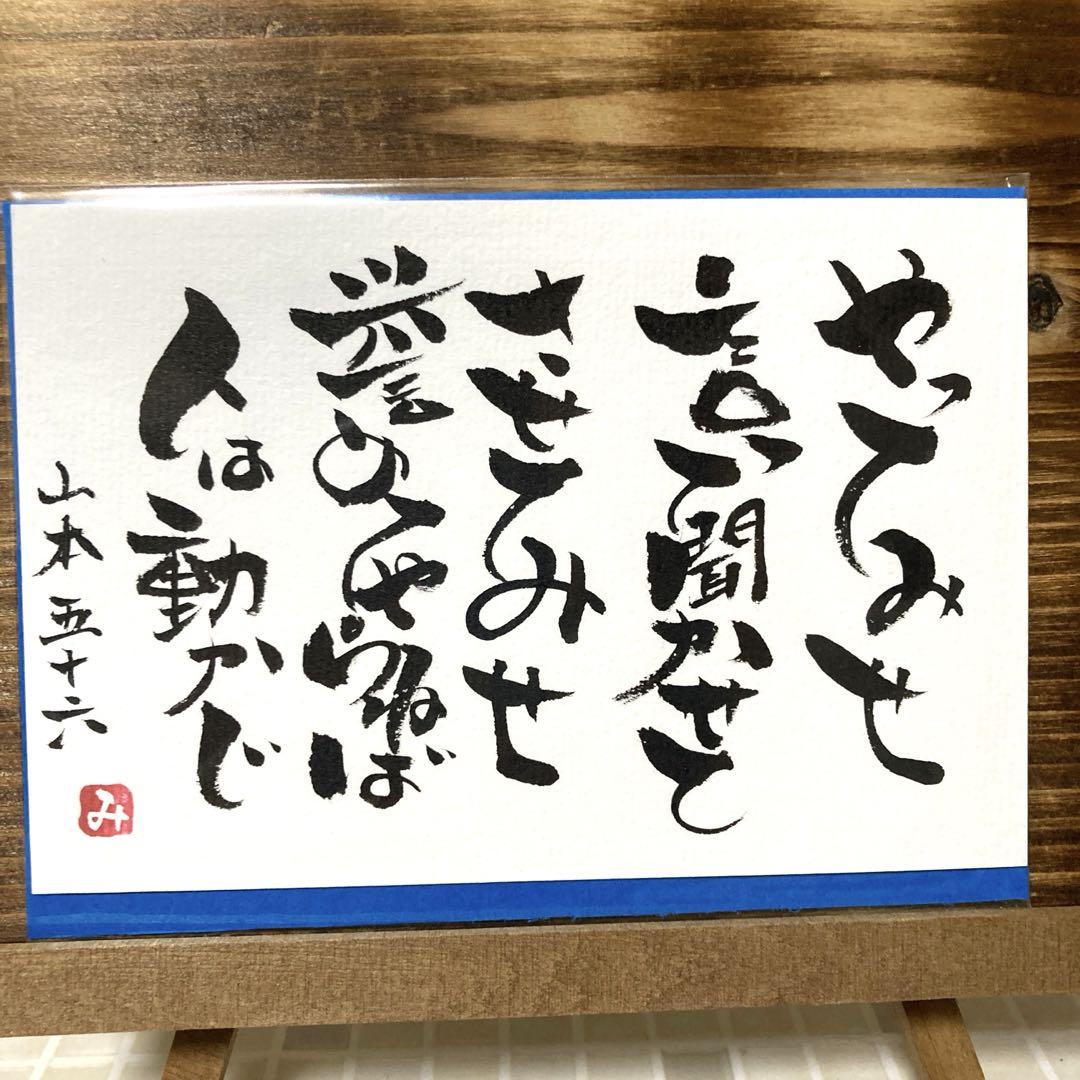 やってみせ
言い聞かせて
させてみせ
誉めてやらねば
人は動かじ
山本五十六
み